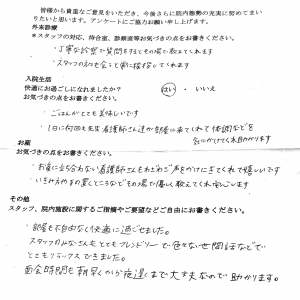 皆様から貴重なご意見をいただき、今後さらに院内態勢の充実に努めてまい
りたいと思います。アンケートにご協力お願い申し上げます。
外来診療
*スタッフの対応、待合室、診察室等お気づきの点をお書きください。
・丁寧な診察で質問をするとその場で教えてくれます
・スタッフの方も会うと常に挨拶してくれます
入院生活
快適にお過ごしになれましたか? はい ・ いいえ
お気づきの点をお書きください。
・ごはんがとても美味しいです
・1日に何回も先生看護師さん達が部屋に来てくれて体調などを
気にかけてくれ助かります
お産
お気づきの点をお書きください。
・お産に立ち会わない看護師さんもわざわざ声をかけにきてくれて嬉しいです
・いきみ方やその置くところなどもその場で優しく教えてくれ安心します
その他
スタッフ、院内施設に関するご指摘やご要望などご自由にお書きください。
・部屋も不自由なく快適に過ごせました。
スタッフのみなさんもとてもフレンドリーで色々な世間話などで
とてもリラックスできました。
面会時間も朝早くから夜遅くまで大丈夫なので助かります。